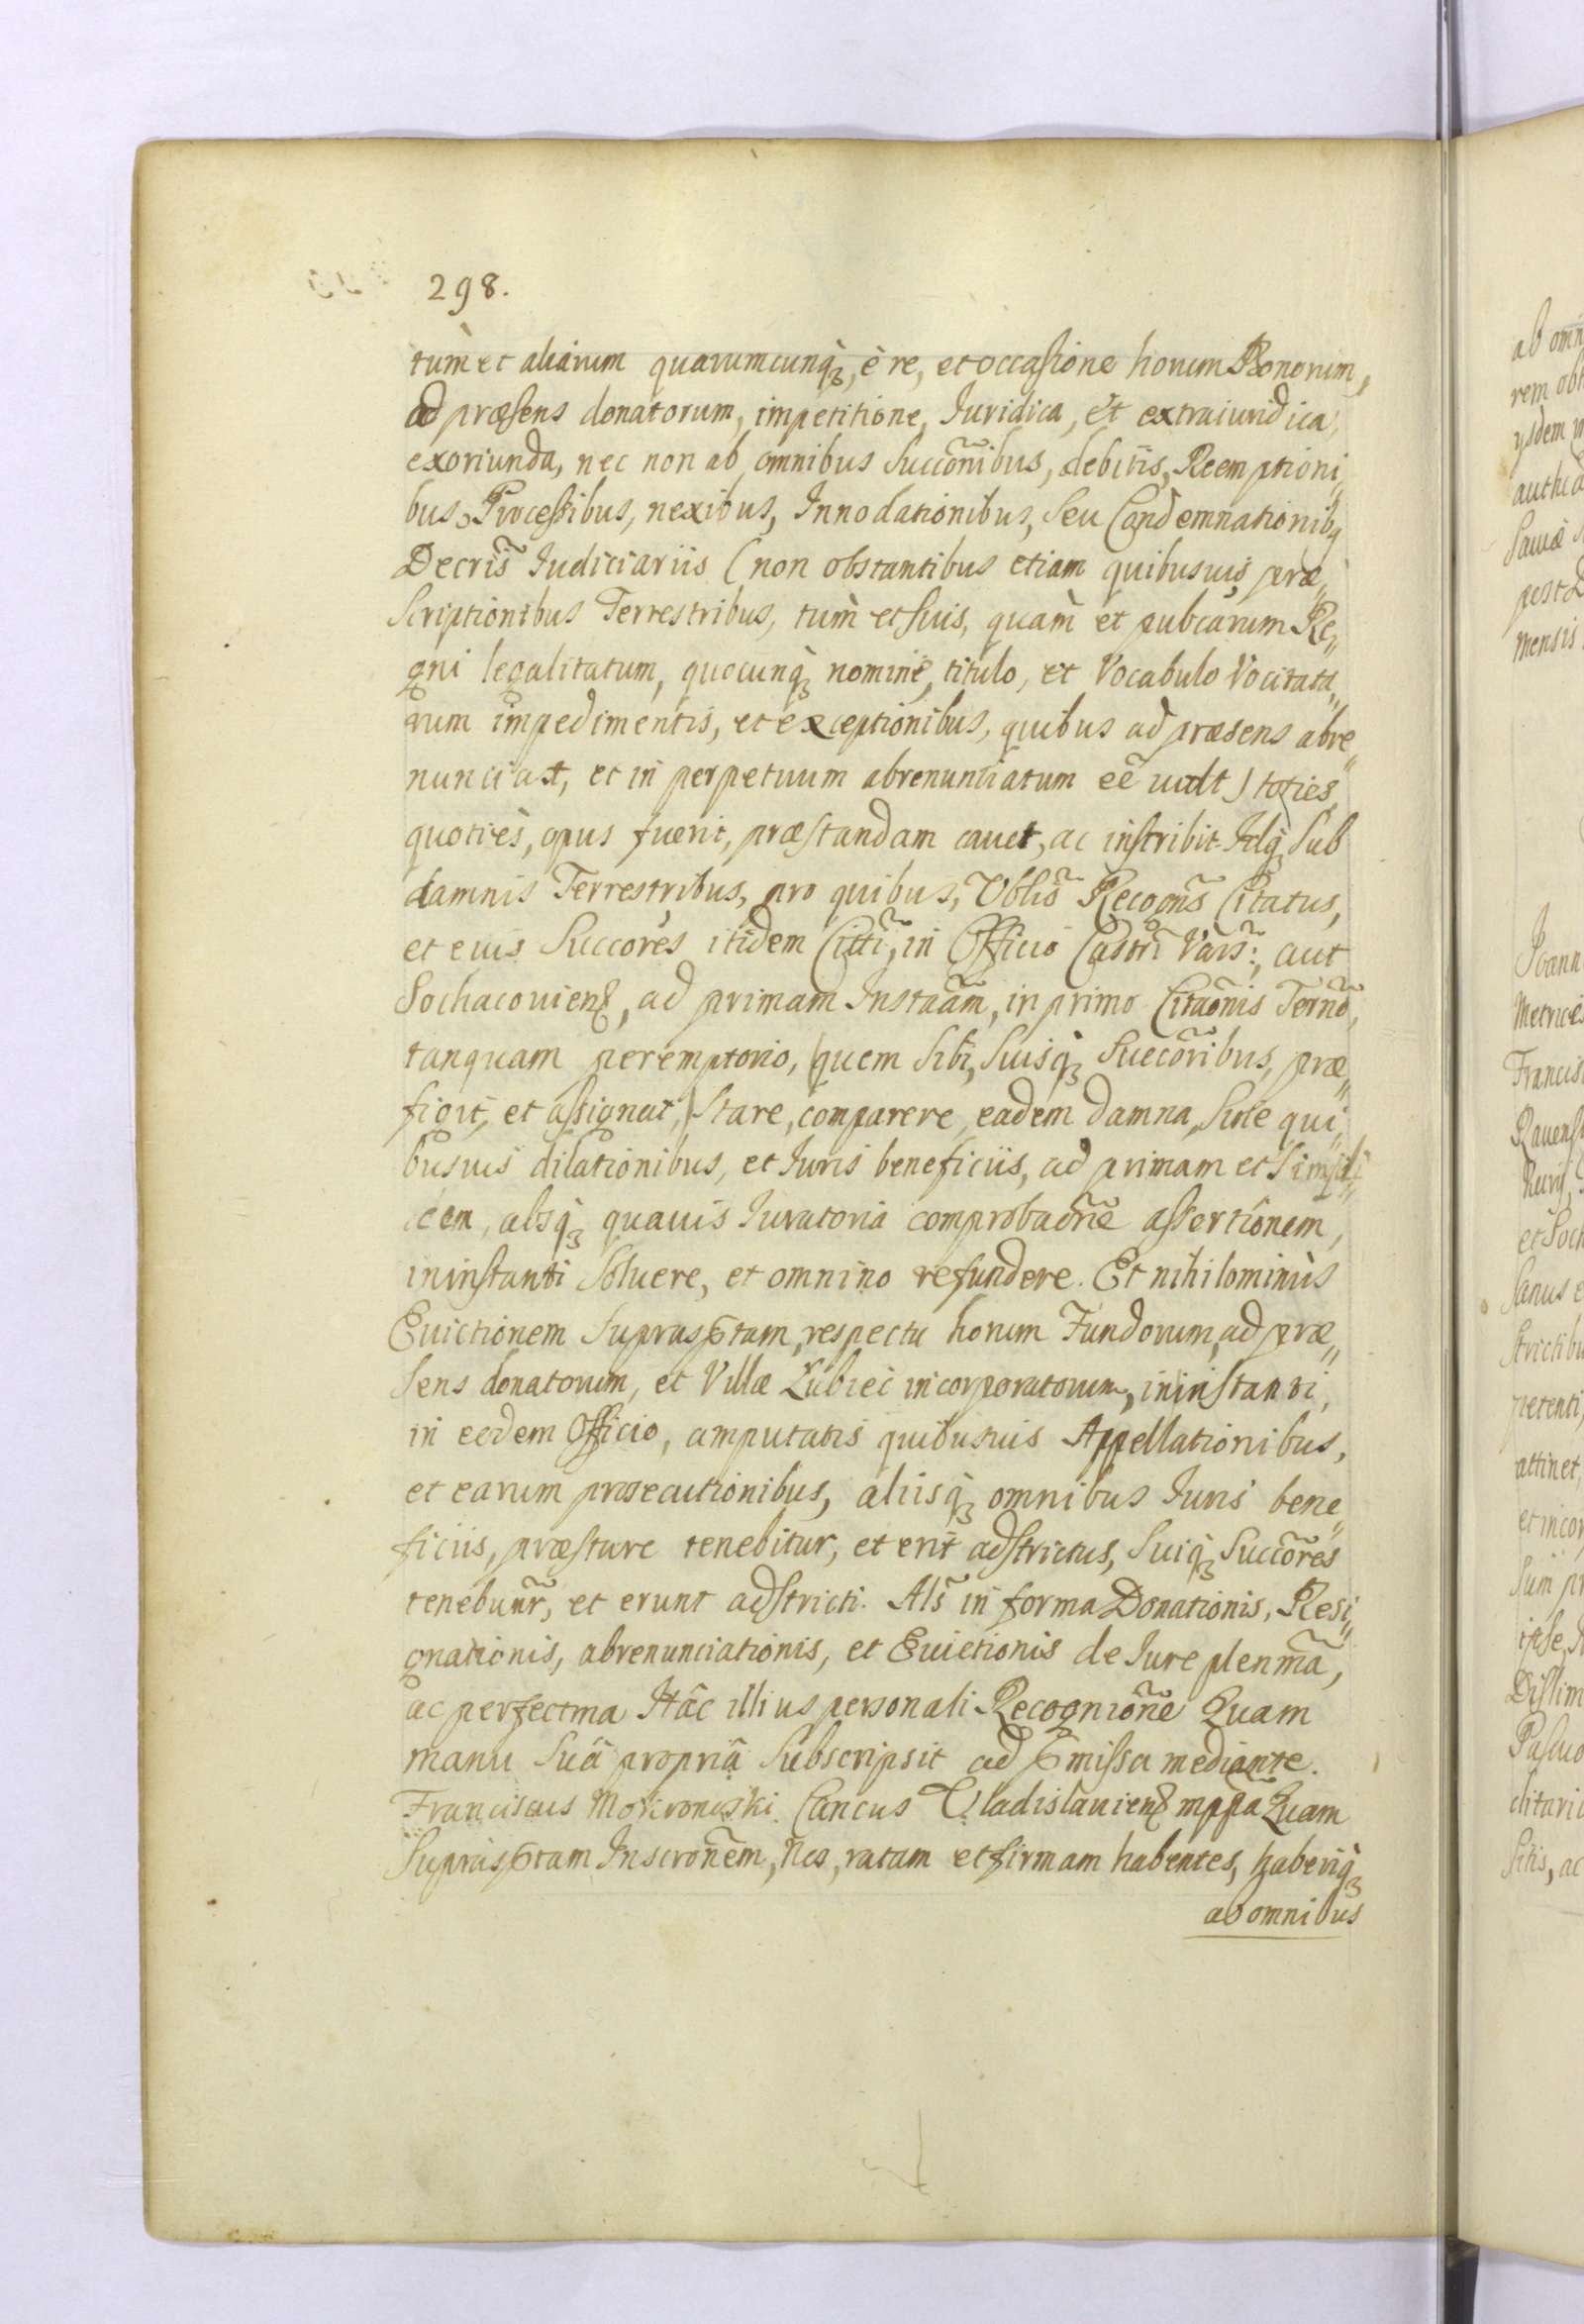 298.
tùm et aliarum quarumcunq́ꝫ, è re, et occasione horum Bonorum,
ad præsens donatorum, impetitione, Iuridica, et extraiuridica,
exoriunda, nec non ab omnibus Succõnibus, debitis, Reemptioni„
bus, Processibus, nexibus, Innodationibus, seu Condemnationibꝗ
Decrĩs Iudiciariis (non obstantibus etiam quibusuis præ„
scriptionibus Terrestribus, tùm et suis, quàm et pubcarum Re„
gni legalitatum, quocunq́ꝫ nomine, titulo, et Vocabulo Vocitata„
rum impedimentis, et exceptionibus, quibus ad præsens abre„
nunciat, et in perpetuum abrenuntiatum eẽ uult) toties,
quotiès, opus fuerit, præstandam cauet, ac inscribit. Idq́ꝫ sub
damnis Terrestribus, pro quibus, Oblĩs Recogñs Citatus,
et eius Succores itidem Cittĩ, in Officio Castrĩ Vars̃:, aut
Sochaceuienꝫ, ad primam Instaãm, in primo Citaõnis Terñõ,
tanquam peremptorio, (quem sibi, suisq́ꝫ Succõribus, præ„
figit, et assignat,) stare, comparere, eadem damna, sine qui„
busuis dilationibus, et Iuris beneficiis, ad primam et simpli„
cem, absq́ꝫ quauis Iuratoria comprobaõne assertionem,
ininstanti soluere, et omnino refundere. Et nihilominùs
Euictionem suprasꝑtam, respectu horum Fundorum, ad præ„
sens donatorum, et Villæ Lubiec incorporatorum, ininstanti,
in eodem Officio, amputatis quibusuis Appellationibus,
et earum prosecutionibus, aliisq́ꝫ omnibus Iuris bene„
ficiis, præstare tenebitur, et erit adstrictus, suiq́ꝫ Succõres
tenebunr̃, et erunt adstricti. Als̃ in forma Donationis, Resi„
gnationis, abrenunciationis, et Euictionis de Iure plenmã,
ac perfectma Hâc illius personali Recogniõne Quam
manu suâ propriâ subscripsit ad ꝑmissa mediante.
Franciscus Mokronoski. Cancus Vladislauienꝫ mppa Quam
suprasꝑtam Inscronẽm, Nos, ratam et firmam habentes, haberiq́ꝫ
ab omnibus